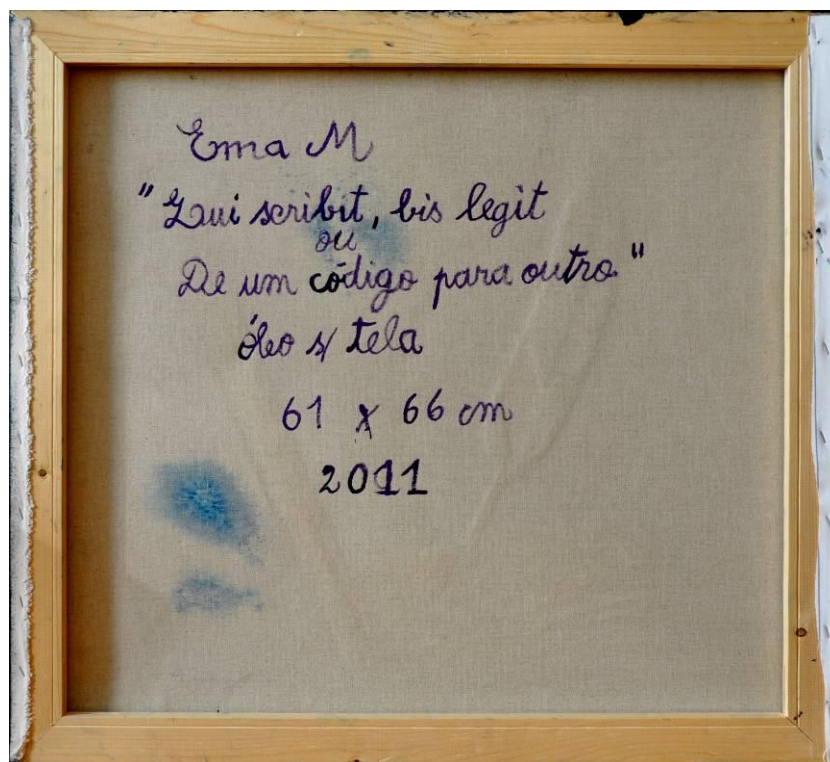 Ema M
"Qui scribit, bis legit
ou
De um código para outro"
óleo s/ tela
61 x 66 cm
2011